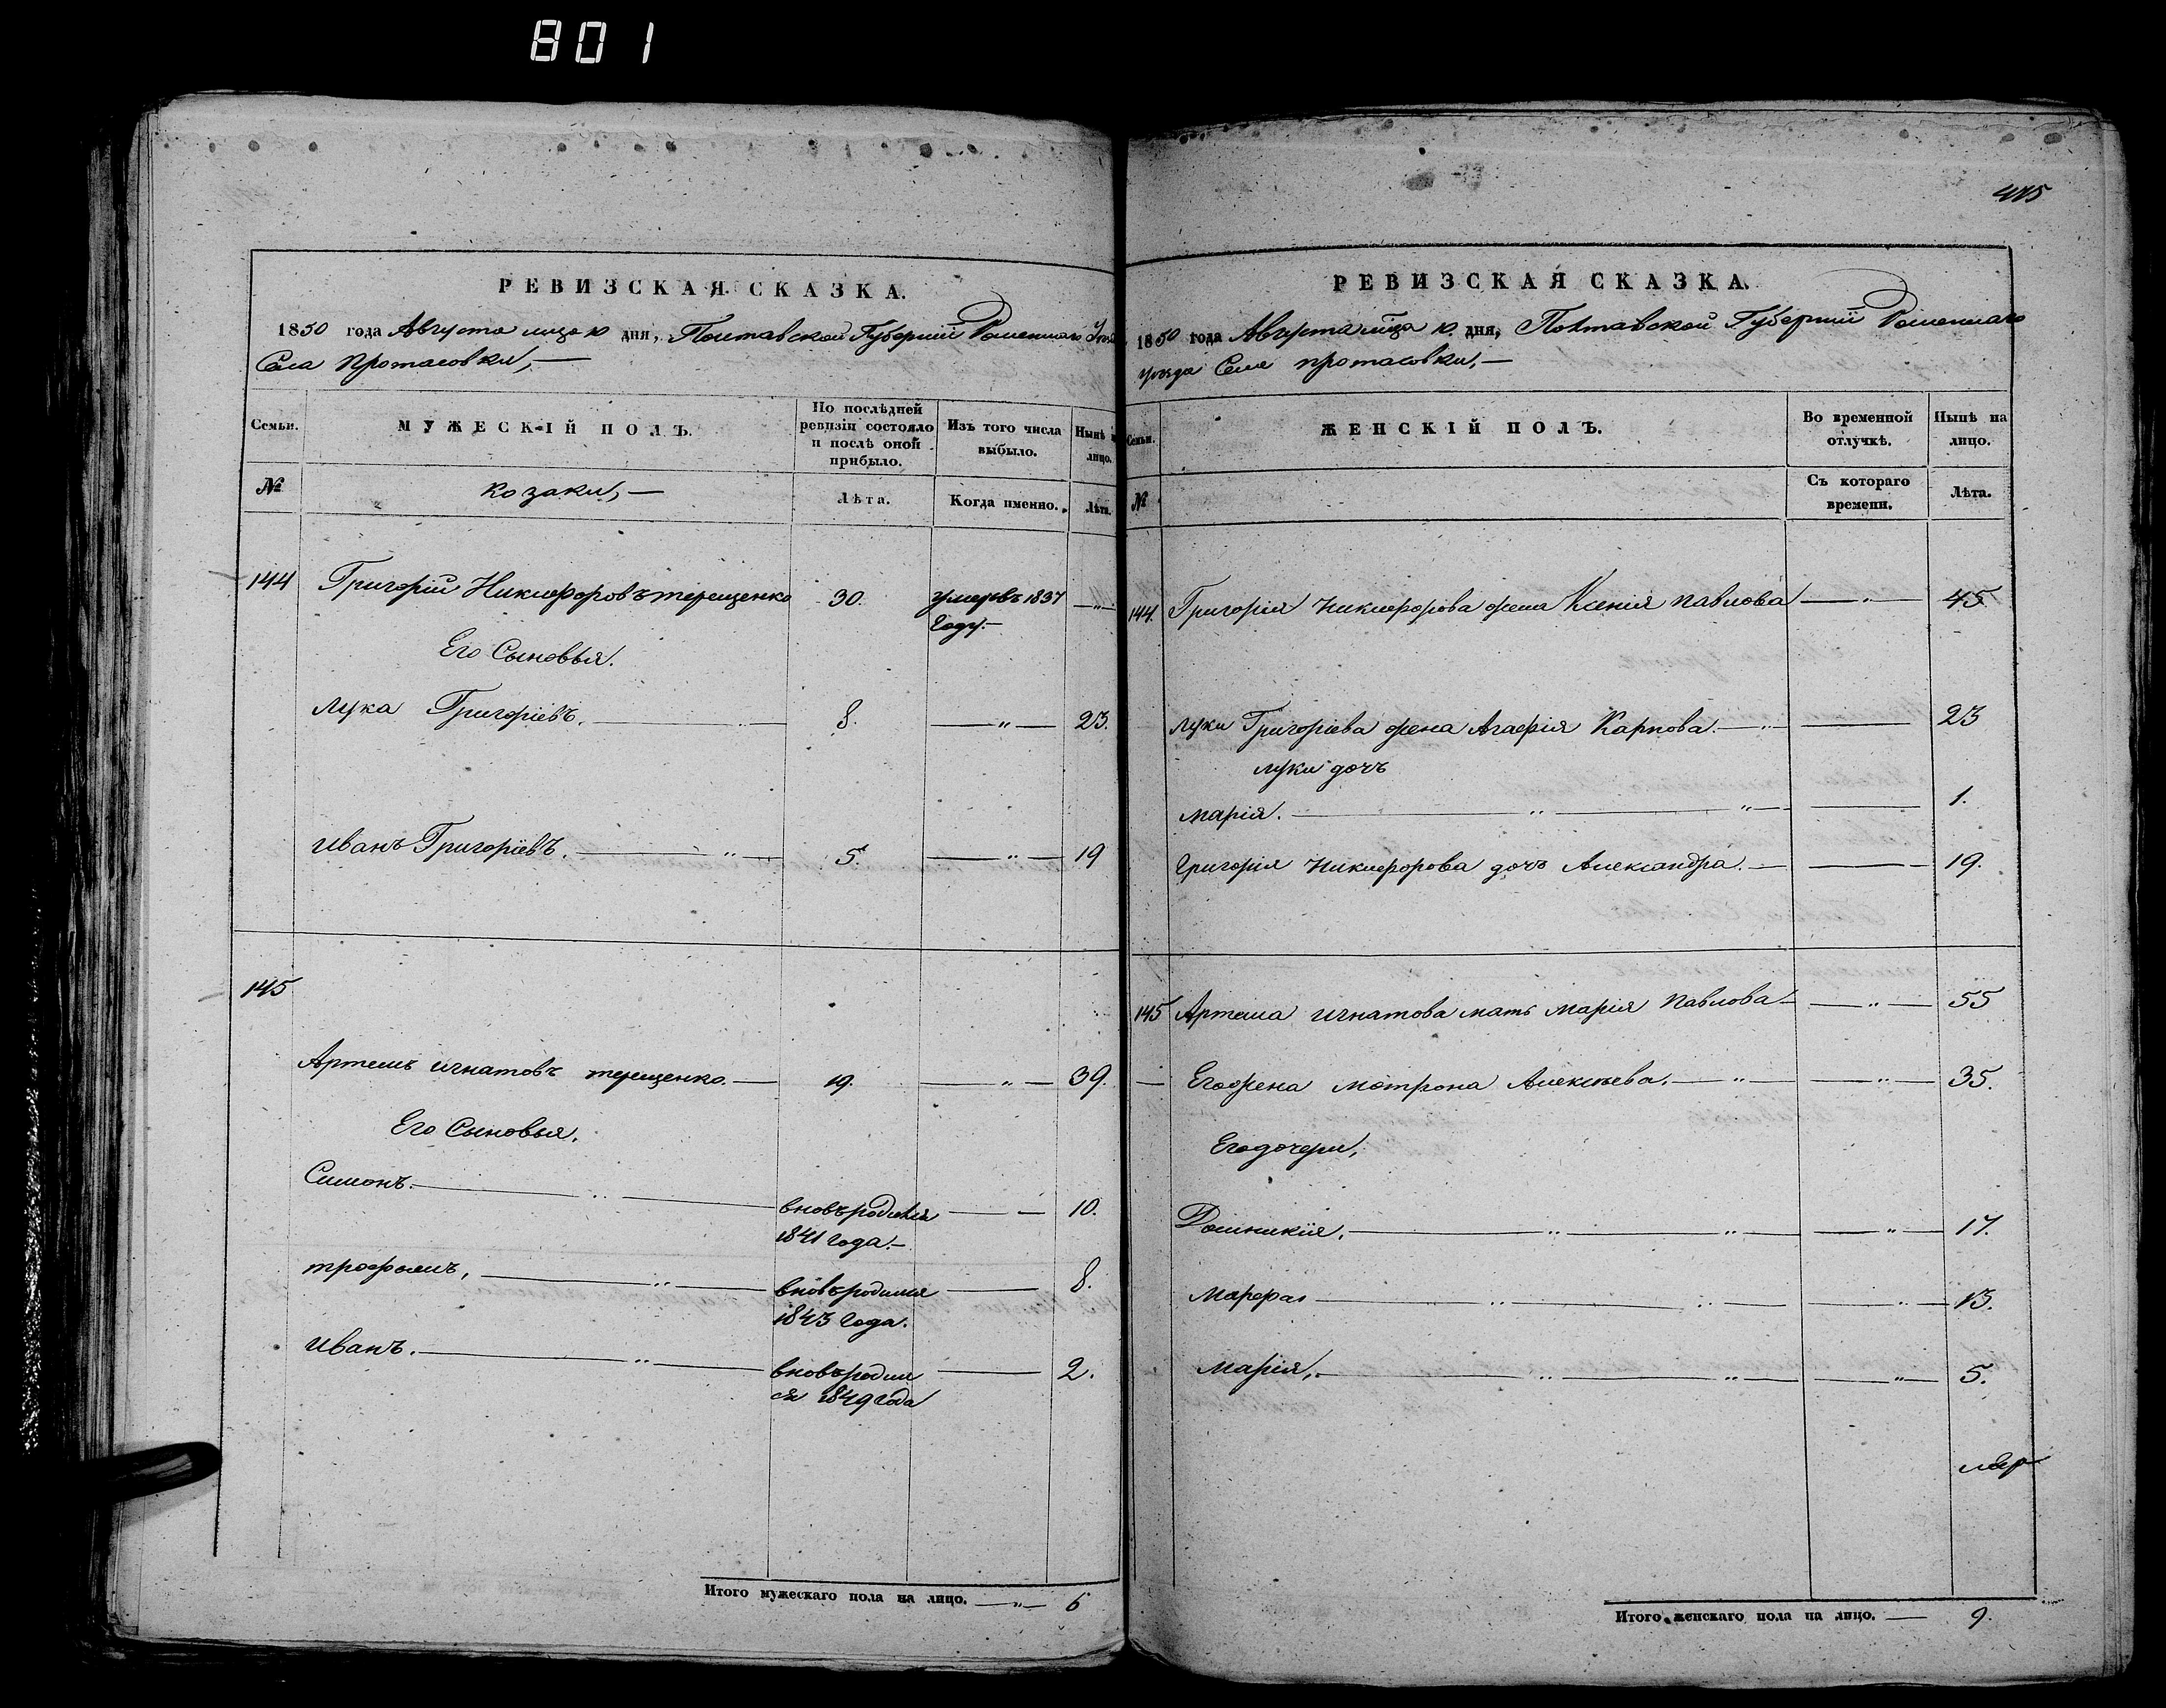 801
РЕВИЗСКАЯ СКАЗКА.
1850 года Августа мца 10 дня, Полтавской Губерніи Роменнаго
Села Протасовки,—
Семьи.
МУЖЕСКІЙ ПОЛЪ.
По послѣдней
ревизіи состояло
и послѣ оной
прибыло.
Изъ того числа
выбыло.
Нынѣ
лицо.
№
козаки,—
Лѣта.
Когда именно.
Лѣта.
144 Григорій Никифоровъ терещенко 30. умеръ въ 1837 —„—
году.—
Его Сыновья.
лука Григоріевъ.— 8. —„— 23.
иванъ Григоріевъ.—„— 5. —„— 19
145
Артемъ игнатовъ терещенко.— 19. —„— 39.
Его Сыновья.
Симонъ.—„— вновьродился — — 10.
1841 года.—
трофымъ,—„— вновьродился — 8.
1843 года.
иванъ.—„— вновьродил — 2.
ся 1849 года
Итого мужескаго пола на лицо.—„— 6
415
РЕВИЗСКАЯ СКАЗКА.
1850 года Августа мца 10 дня, Полтавской Губерніи Роменнаго
уезда Села протасовки,—
Семьи.
ЖЕНСКІЙ ПОЛЪ.
Во временной
отлучкѣ.
Нынѣ на
лицо.
№
Съ котораго
времени.
Лѣта.
144. Григорія никифорова жена Ксенія павлова —„— 45
луки Григоріева жена Агафія Карпова.—„— — 23
луки дочъ
марія.—„—„— — 1.
григорія никифорова дочъ Александра.— — 19.
145 Артема игнатова мать марія павлова— —„— 55
— Его жена мотрона Алексѣева.—„— —„— 35.
Его дочери,
Домникія.—„—„— —„— 17.
марфа—„—„— —„— 13.
марія,.—„—„— —„— 5.
Итого женскаго пола на лицо.— 9.